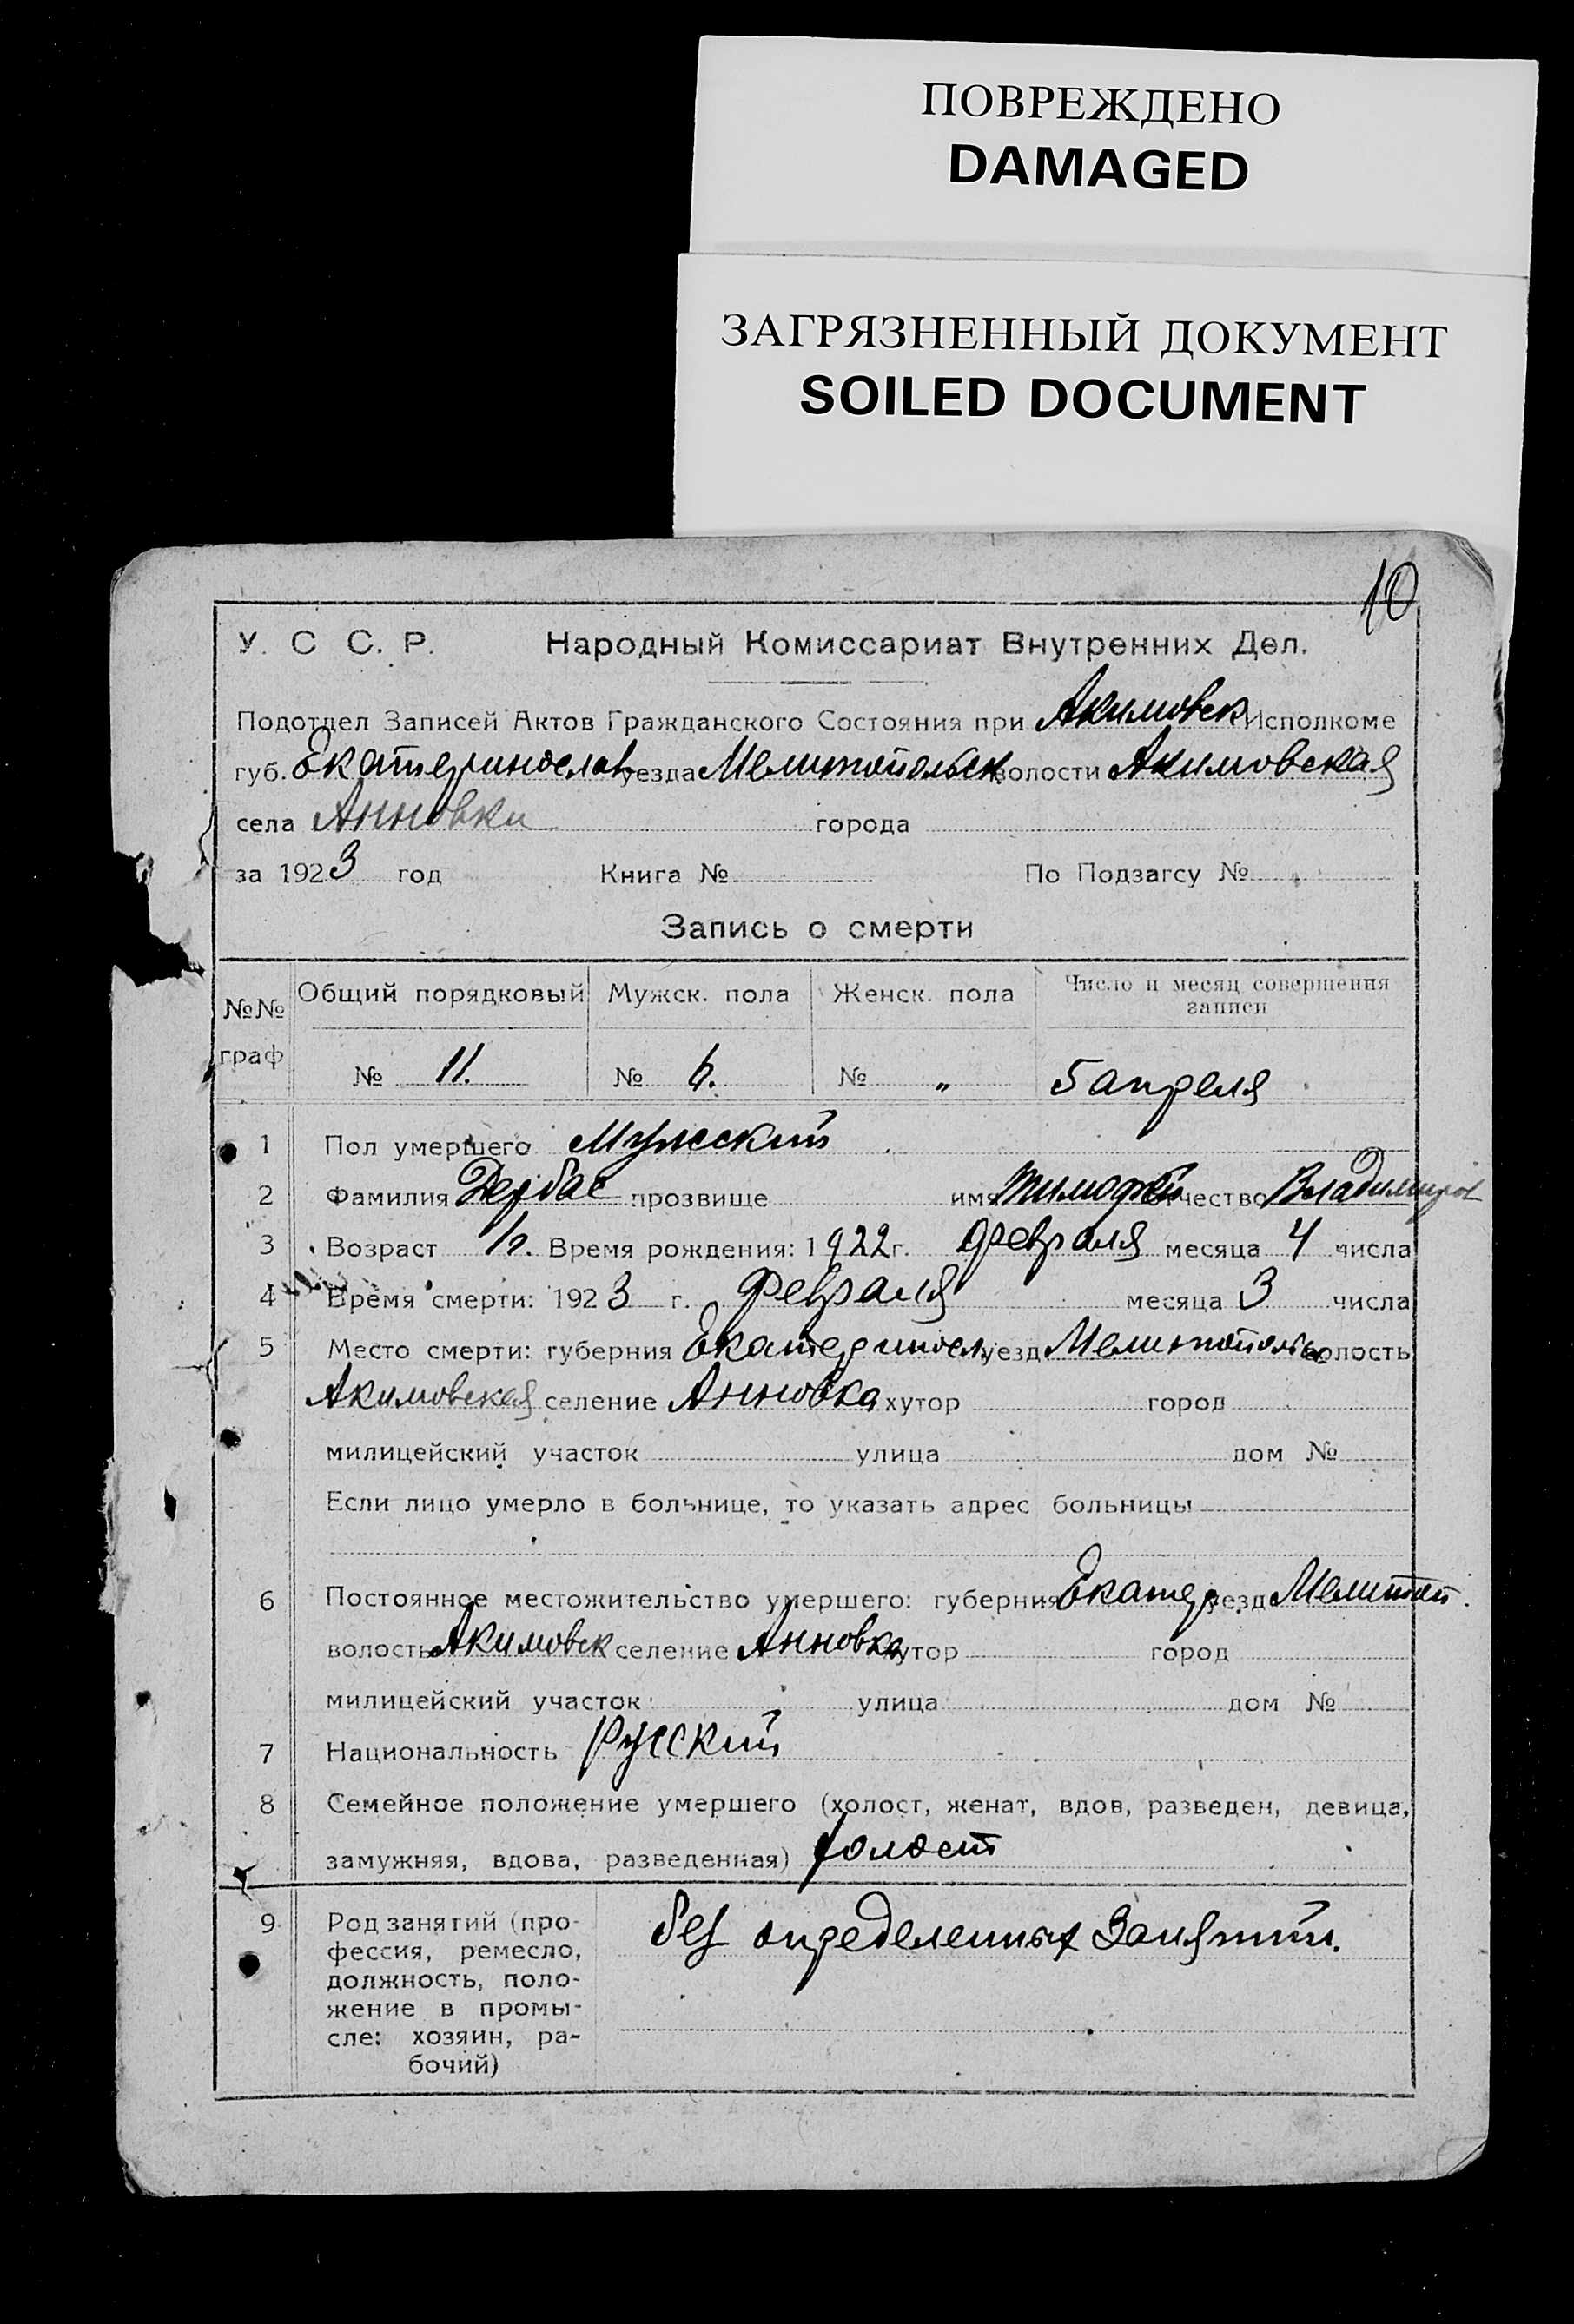 ПОВРЕЖДЕНО
DAMAGED
ЗАГРЯЗНЕННЫЙ ДОКУМЕНТ
SOILED DOCUMENT
10
У. С С. Р. Народный Комиссариат Внутренних Дел.
Подотдел Записей Актов Гражданского Состояния при Акимовск Исполкоме
губ. Екатеринослав уезда Мелитопольск волости Акимовская
села Анновки города
за 1923 год Книга № По Подзагсу №
Запись о смерти
№№ граф Общий порядковый Мужск. пола Женск. пола Число и месяц совершения записи
№ 11. № 6. № „ 5 апреля
1 Пол умершего Мужский
2 Фамилия Дербас прозвище имя Тимофей отчество Владимиров
3 Возраст 1 г. Время рождения: 1922 г. февраля месяца 4 числа
4 Время смерти: 1923 г. февраля месяца 3 числа
5 Место смерти: губерния Екатериносл. уезд Мелитопольск волость
Акимовская селение Анновка хутор город
милицейский участок улица дом №
Если лицо умерло в больнице, то указать адрес больницы
6 Постоянное местожительство умершего: губерния Екатер. уезд Мелитоп.
волость Акимовск селение Анновка хутор город
милицейский участок улица дом №
7 Национальность Русский
8 Семейное положение умершего (холост, женат, вдов, разведен, девица,
замужняя, вдова, разведенная) холост
9 Род занятий (про-
фессия, ремесло,
должность, поло-
жение в промы-
сле: хозяин, ра-
бочий)
без определенных занятий.